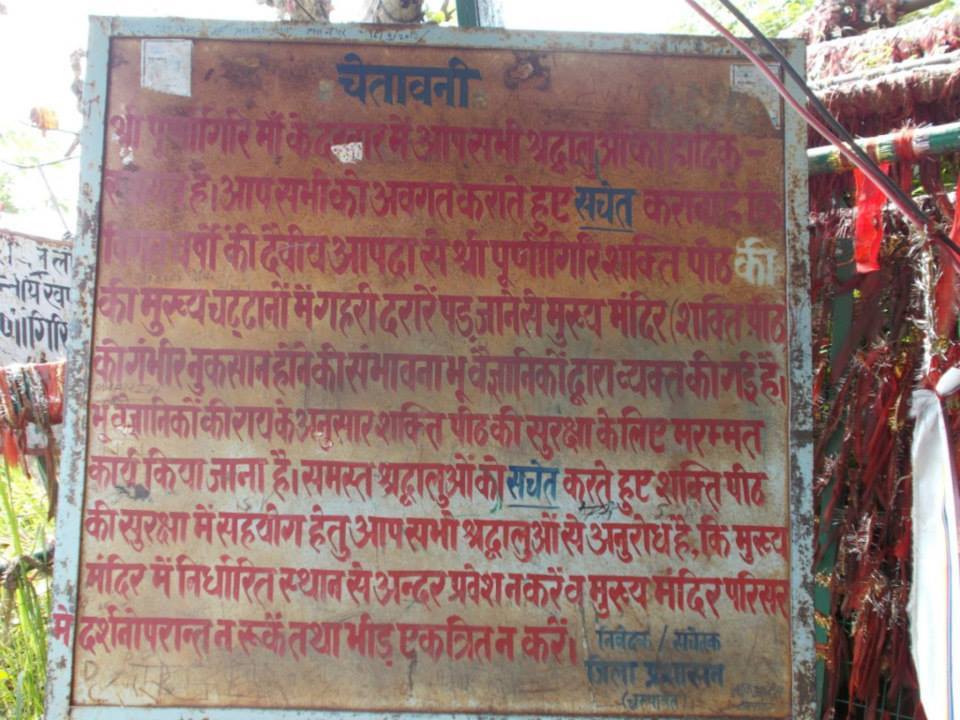 चेतावनी
श्री पूर्णागिरि माँ के दरबार में आप सभी श्रद्धालुओं का हार्दिक -
स्वागत है। आप सभी को अवगत कराते हुए सचेत कराना है कि
विगत वर्षों की दैवीय आपदा से श्री पूर्णागिरि शक्ति पीठ की
की मुख्य चट्टानों में गहरी दरारें पड़ जाने से मुख्य मंदिर (शक्ति पीठ
को गंभीर नुकसान होने की संभावना भू वैज्ञानिकों द्वारा व्यक्त की गई है।
भू वैज्ञानिकों की राय के अनुसार शक्ति पीठ की सुरक्षा के लिए मरम्मत
कार्य किया जाना है। समस्त श्रद्धालुओं को सचेत करते हुए शक्ति पीठ
की सुरक्षा में सहयोग हेतु आप सभी श्रद्धालुओं से अनुरोध है, कि मुख्य
मंदिर में निर्धारित स्थान से अन्दर प्रवेश न करें व मुख्य मंदिर परिसर
में दर्शनोपरान्त न रूकें तथा भीड़ एकत्रित न करें।
निवेदक / सचेतक
जिला प्रशासन
(चम्पावत)